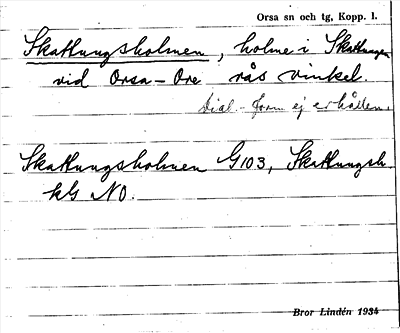 Orsa sn och tg, Kopp. l.
Skattungsholmen, holme i Skattungen
vid Orsa–Ore rås vinkel.
Dial.-form ej erhållen.
Skattungsholmen G103, Skattungsh.
kG NO.
Bror Lindén 1934